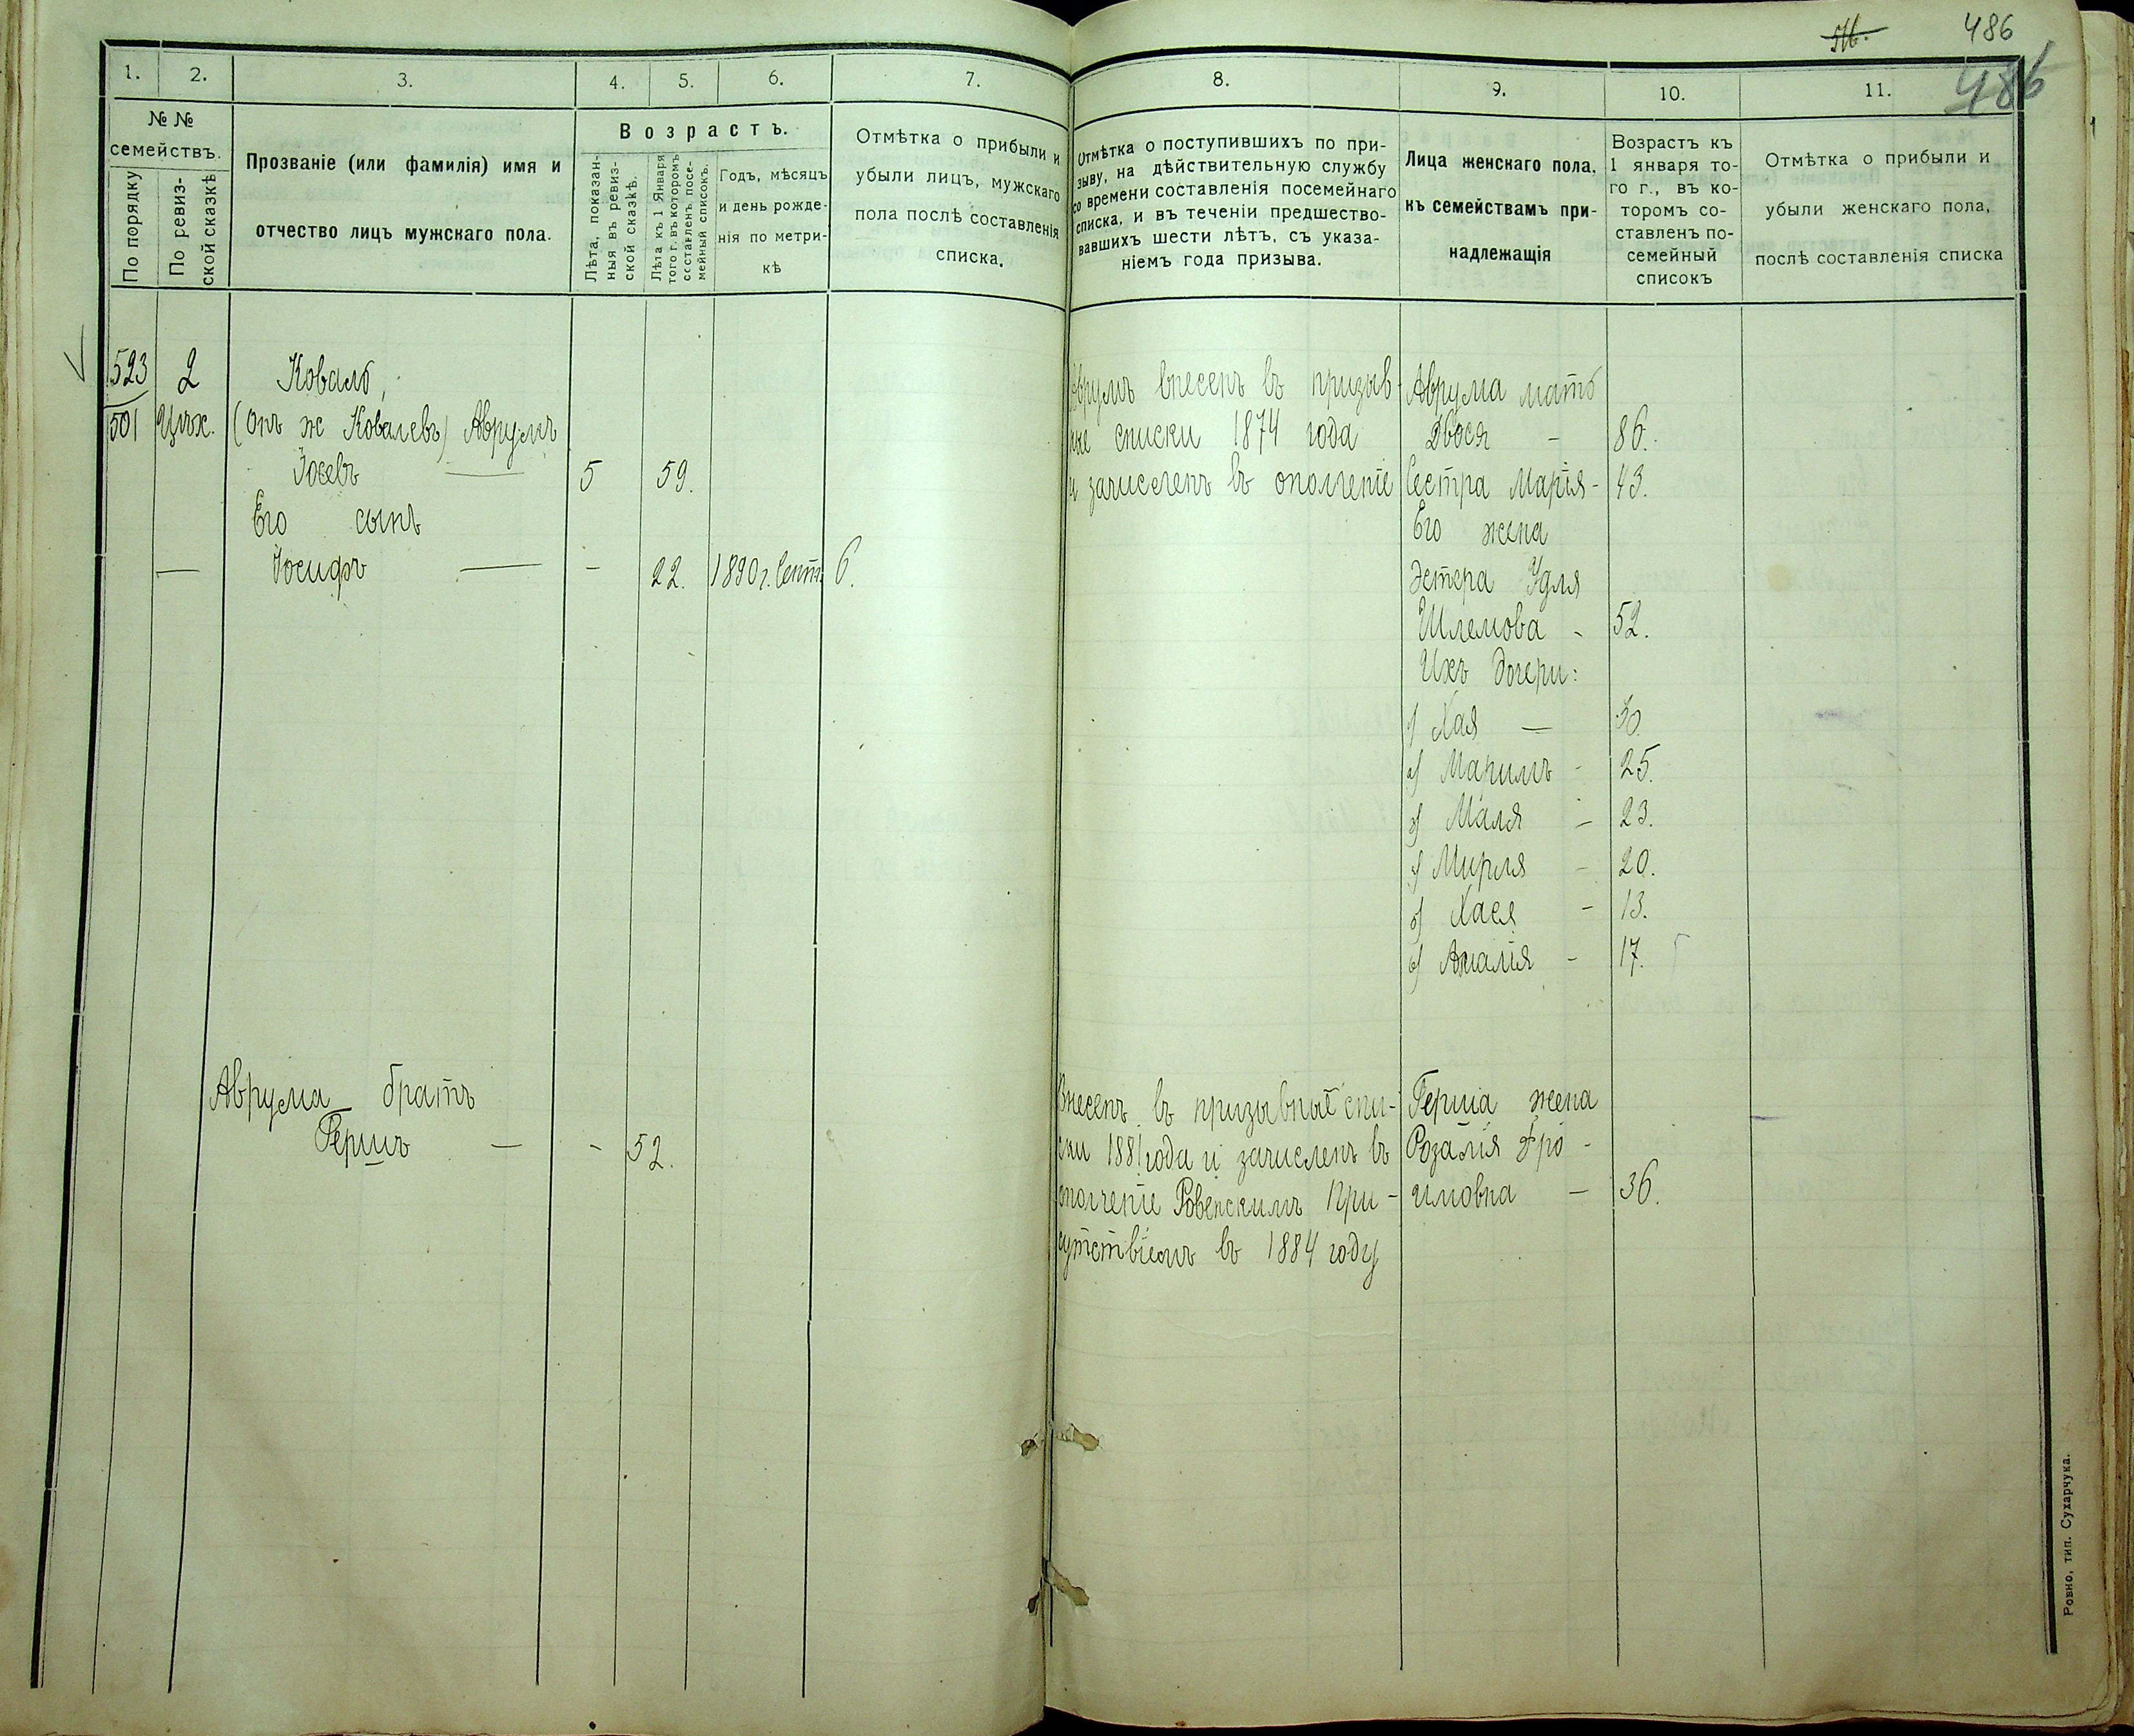 516.
486
486
1.
2.
3.
4.
5.
6.
7.
№ №
семействъ.
По порядку
По ревиз-
ской сказкѣ
Прозваніе (или фамилія) имя и
отчество лицъ мужскаго пола.
Возрастъ.
Лѣта, показан-
ныя въ ревиз-
ской сказкѣ.
Лѣта къ 1 Января
того г. въ которомъ
составленъ посе-
мейный списокъ.
Годъ, мѣсяцъ
и день рожде-
нія по метри-
кѣ
Отмѣтка о прибыли и
убыли лицъ, мужскаго
пола послѣ составленія
списка.
523
2
Коваль,
501
Цех.
(онъ ж Ковалевъ) Аврумъ
Іосевъ
5
59.
Его сынъ
—
Іосифъ — -
22.
1890 г. Сент. 6.
Аврума братъ
Гершъ — -
52.
8.
9.
10.
11.
Отмѣтка о поступившихъ по при-
зыву, на дѣйствительную службу
со времени составленія посемейнаго
списка, и въ теченіи предшество-
вавшихъ шести лѣтъ, съ указа-
ніемъ года призыва.
Лица женскаго пола,
къ семействамъ при-
надлежащія
Возрастъ къ
1 января то-
го г., въ ко-
торомъ со-
ставленъ по-
семейный
списокъ
Отмѣтка о прибыли и
убыли женскаго пола,
послѣ составленія списка
Аврумъ внесенъ въ призыв-
ные списки 1874 года
и зачисленъ въ ополченіе
Аврума мать
Двося - 86.
Сестра Марія - 43.
Его жена
Эстера Удля
Шлемова - 52.
Ихъ дочери:
1) Хая — 30.
2) Маримъ - 25.
3) Маля - 23.
4) Мирля - 20.
5) Хася - 13.
6) Амалія - 17.
Внесенъ въ призывные спи-
ски 1881 года и зачисленъ въ
ополченіе Ровенскимъ При-
сутствіемъ въ 1884 году
Герша жена
Розалія Фро-
имовна — 36.
Ровно, тип. Сухарчука.